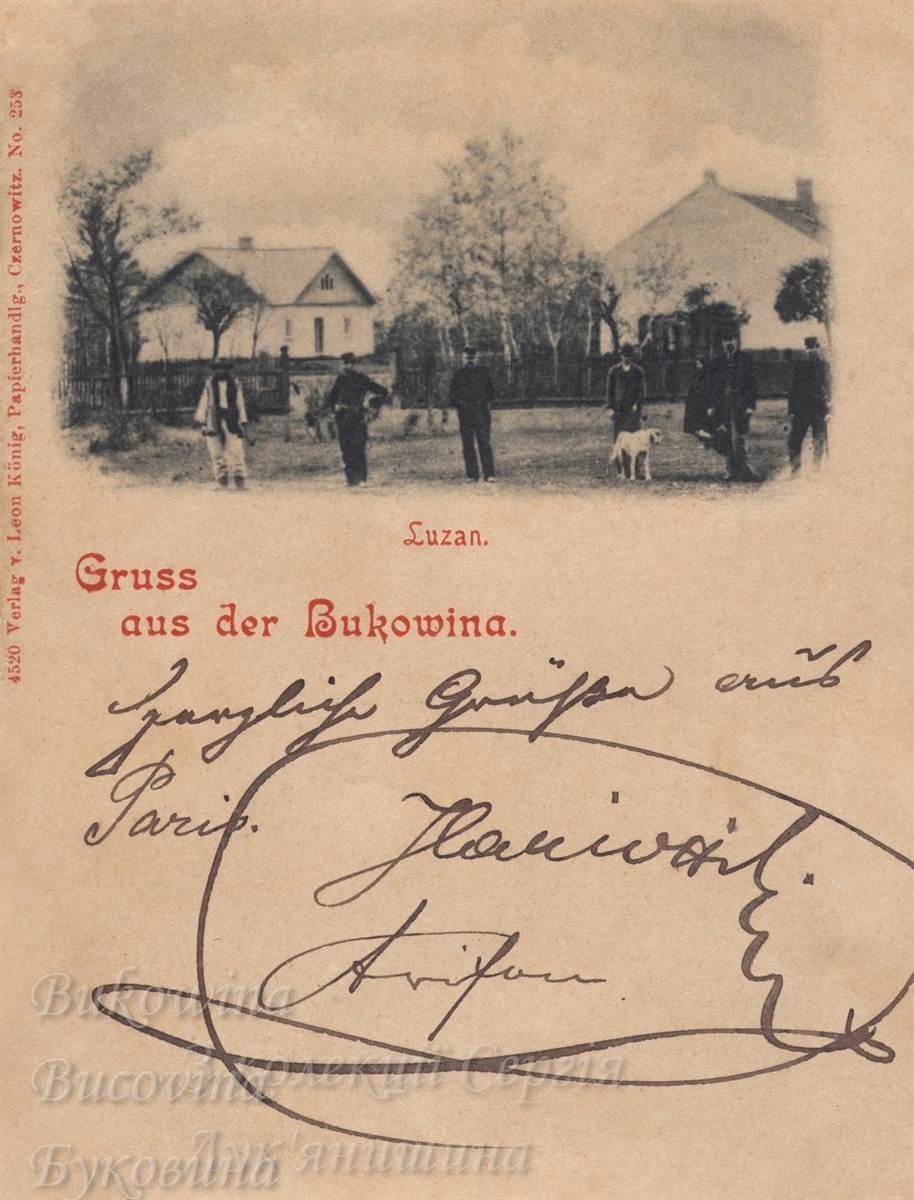 4520 Verlag v. Leon König, Papierhandlg., Czernowitz. No. 253
Luzan.
Gruss
aus der Bukowina.
Herzliche Grüße aus
Paris.
Bukowina
З колекції Сергія
Bucovina
Лук'янишина
Буковина